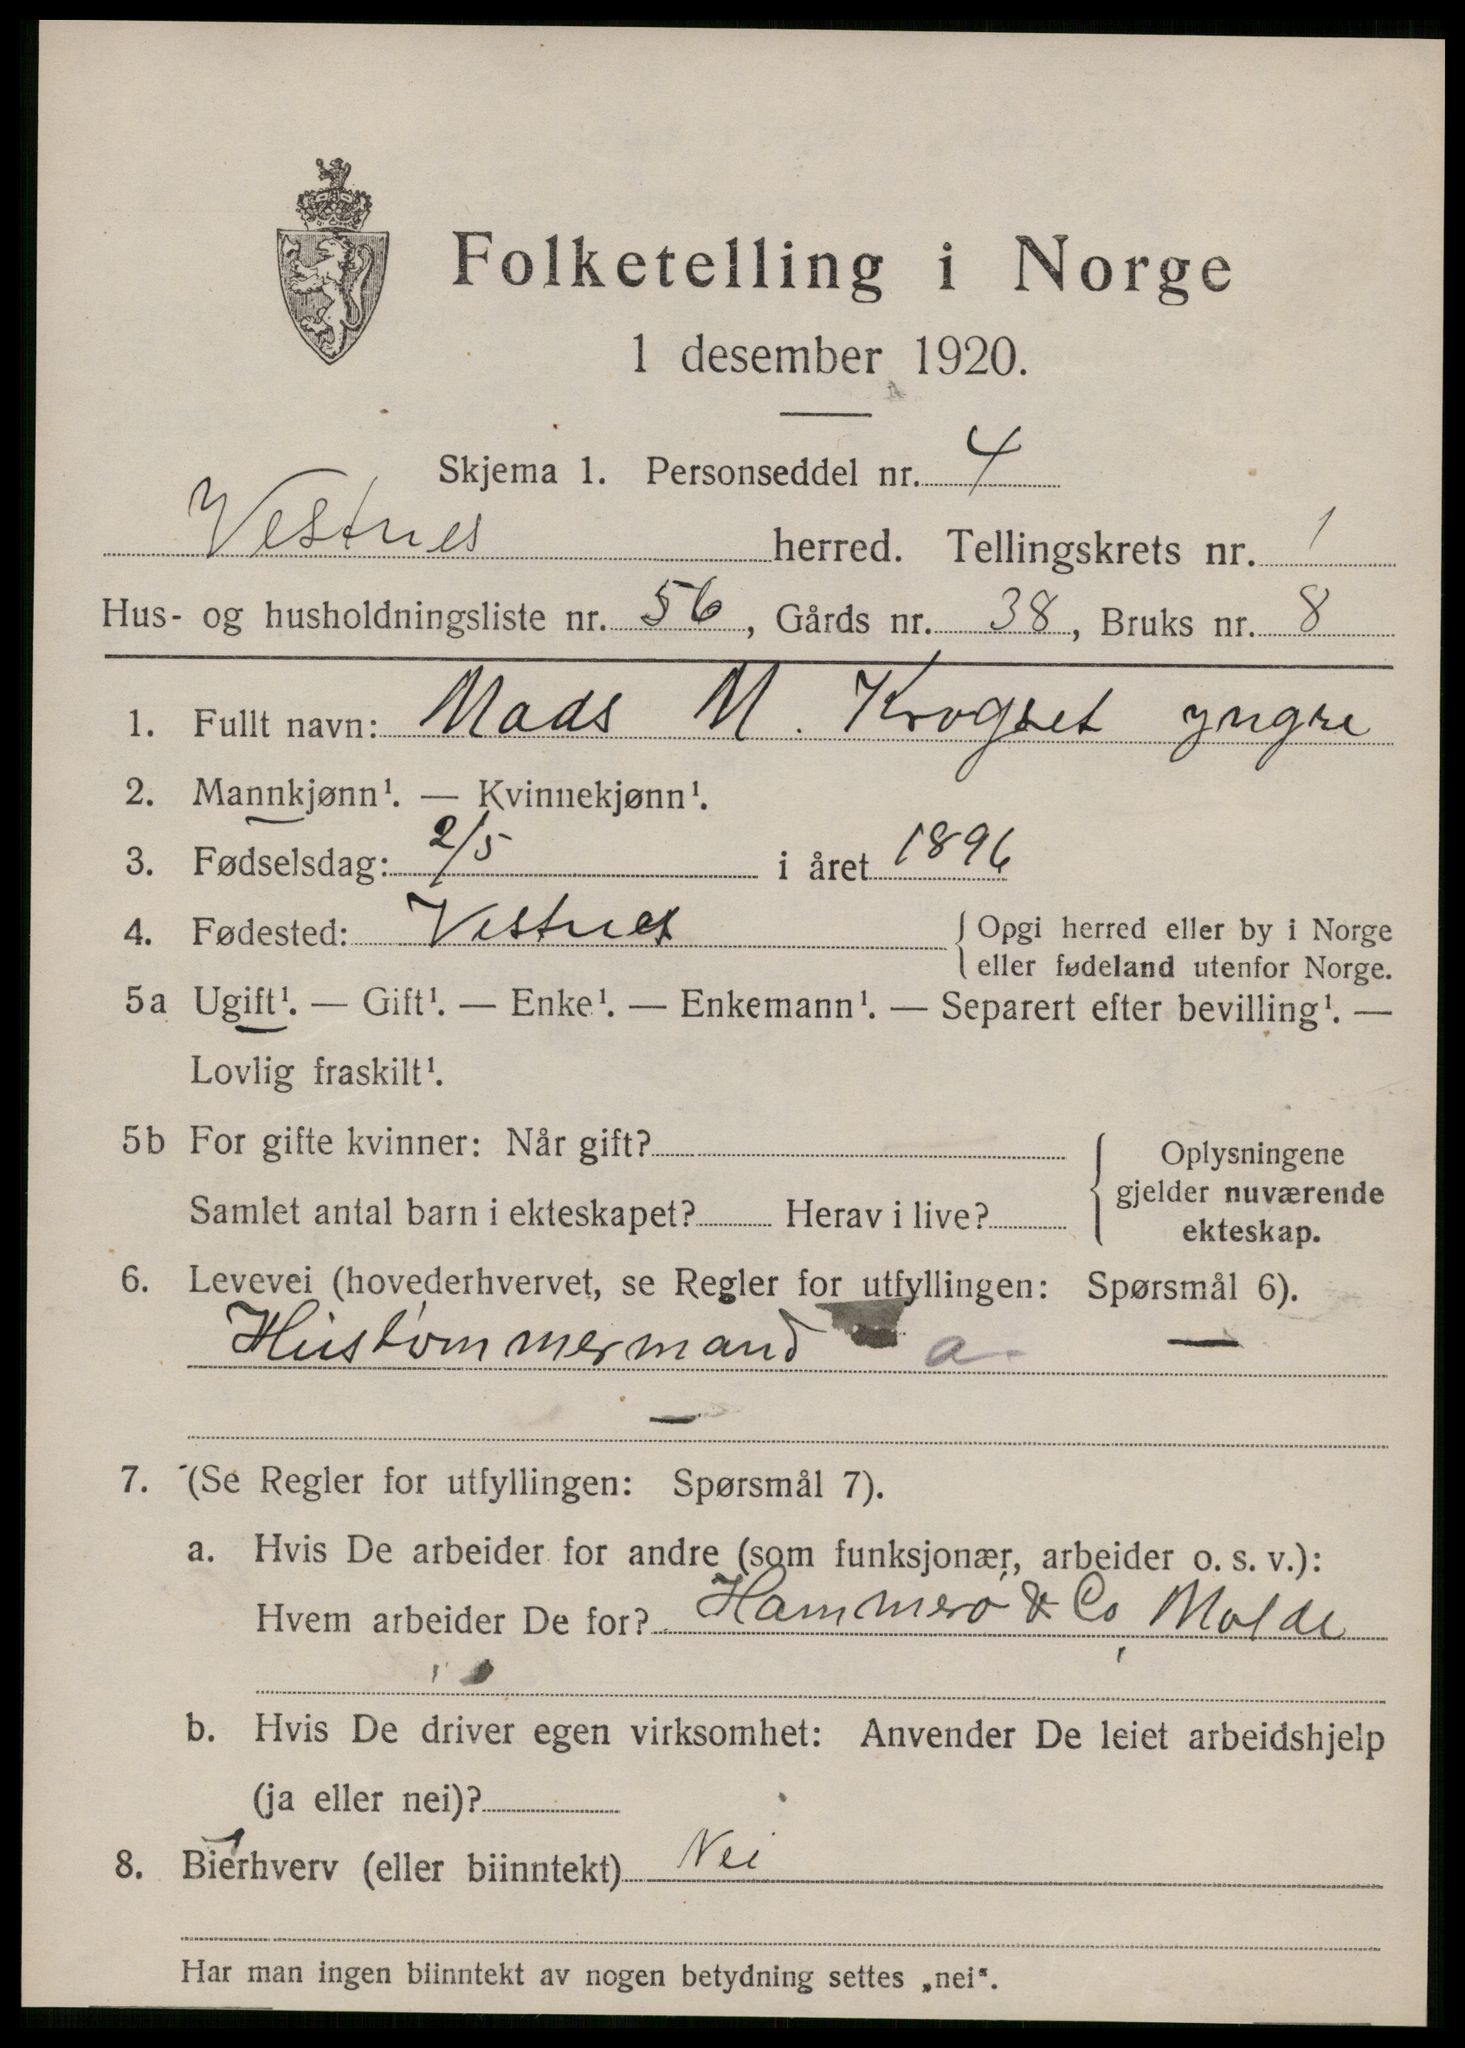 Folketelling i Norge
1 desember 1920.
Skjema 1. Personseddel nr. 4
Vestnes herred. Tellingskrets nr. 1
Hus- og husholdningsliste nr. 56, Gårds nr. 38, Bruks nr. 8
1. Fullt navn: Mads M. Krogset yngre
2. Mannkjønn¹. — Kvinnekjønn¹.
3. Fødselsdag: 2/5 i året 1896
4. Fødested: Vestnes { Opgi herred eller by i Norge
eller fødeland utenfor Norge.
5a Ugift¹. — Gift¹. — Enke¹. — Enkemann¹. — Separert efter bevilling¹. —
Lovlig fraskilt¹.
5b For gifte kvinner: Når gift?
Samlet antal barn i ekteskapet? Herav i live?
{ Oplysningene
gjelder nuværende
ekteskap.
6. Levevei (hovederhvervet, se Regler for utfyllingen: Spørsmål 6).
Hustømmermand a. —
—
7. (Se Regler for utfyllingen: Spørsmål 7).
a. Hvis De arbeider for andre (som funksjonær, arbeider o. s. v.):
Hvem arbeider De for? Hammerø & Co, Molde
b. Hvis De driver egen virksomhet: Anvender De leiet arbeidshjelp
(ja eller nei)?
8. Bierhverv (eller biinntekt) Nei
Har man ingen biinntekt av nogen betydning settes „nei".